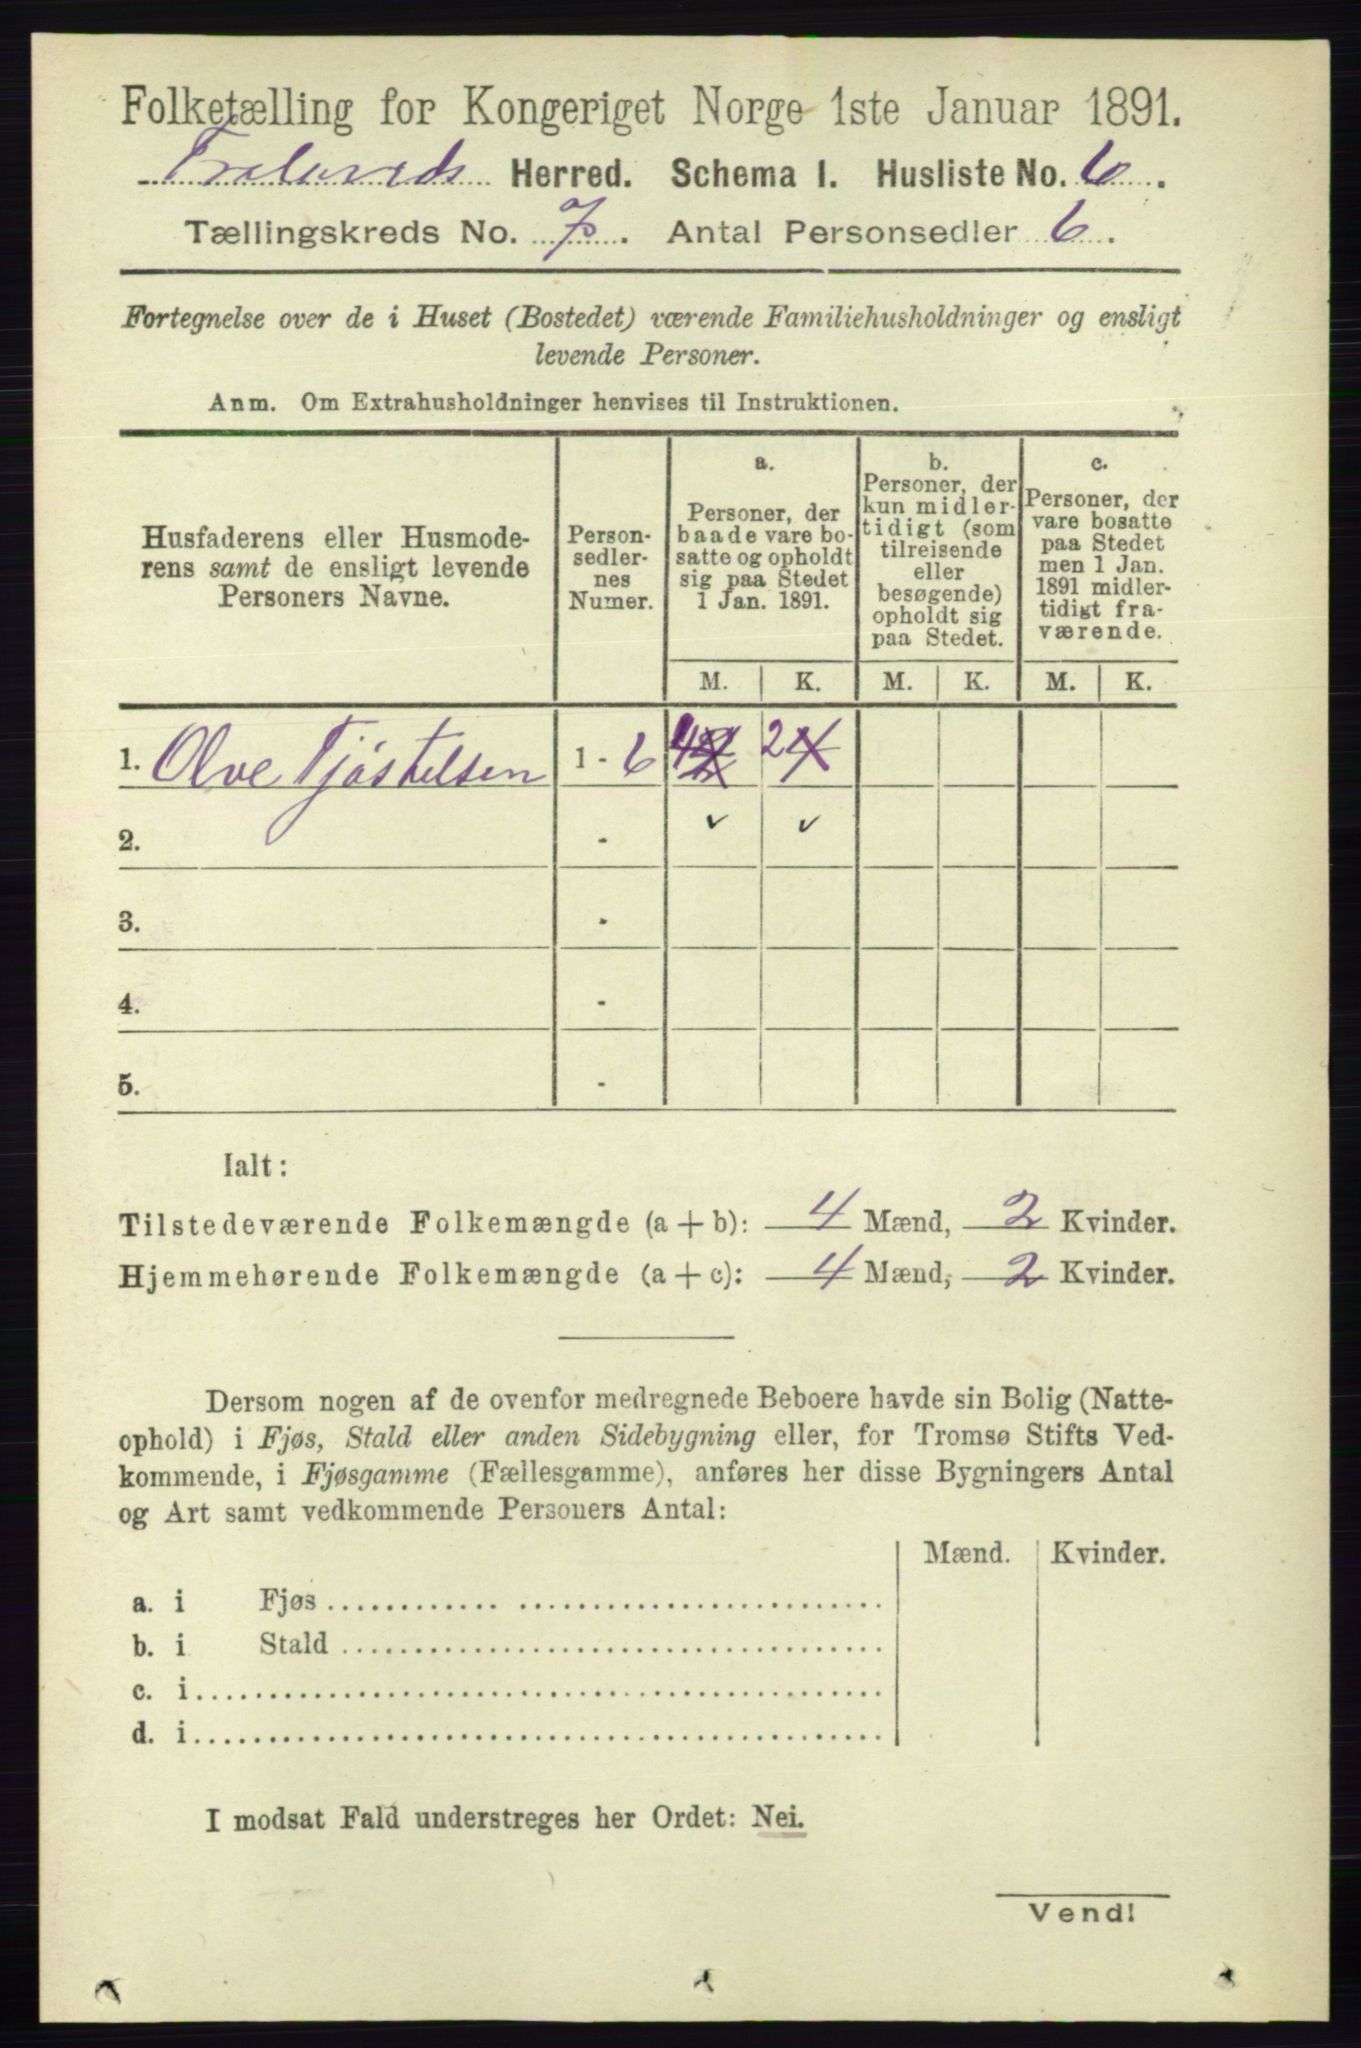 Folketælling for Kongeriget Norge 1ste Januar 1891.
Herred. Schema I. Husliste No. 6.
Tællingskreds No. 7. Antal Personsedler 6.
Fortegnelse over de i Huset (Bostedet) værende Familiehusholdninger og ensligt
levende Personer.
Anm. Om Extrahusholdninger henvises til Instruktionen.
Husfaderens eller Husmode-
rens samt de ensligt levende
Personers Navne.
Person-
sedler-
nes
Numer.
a.
Personer, der
baade vare bo-
satte og opholdt
sig paa Stedet
1 Jan. 1891.
b.
Personer, der
kun midler-
tidigt (som
tilreisende
eller
besøgende)
opholdt sig
paa Stedet.
c.
Personer, der
vare bosatte
paa Stedet
men 1 Jan.
1891 midler-
tidigt fra-
værende.
M. K. M. K. M. K.
1. Olve Tjøstelsen 1 - 6 4 2 2 4
2. -
3. -
4. -
5. -
Ialt:
Tilstedeværende Folkemængde (a + b): 4 Mænd, 2 Kvinder.
Hjemmehørende Folkemængde (a + c): 4 Mænd, 2 Kvinder.
Dersom nogen af de ovenfor medregnede Beboere havde sin Bolig (Natte-
ophold) i Fjøs, Stald eller anden Sidebygning eller, for Tromsø Stifts Ved-
kommende, i Fjøsgamme (Fællesgamme), anføres her disse Bygningers Antal
og Art samt vedkommende Personers Antal:
Mænd. Kvinder.
a. i Fjøs
b. i Stald
c. i
d. i
I modsat Fald understreges her Ordet: Nei.
Vend!